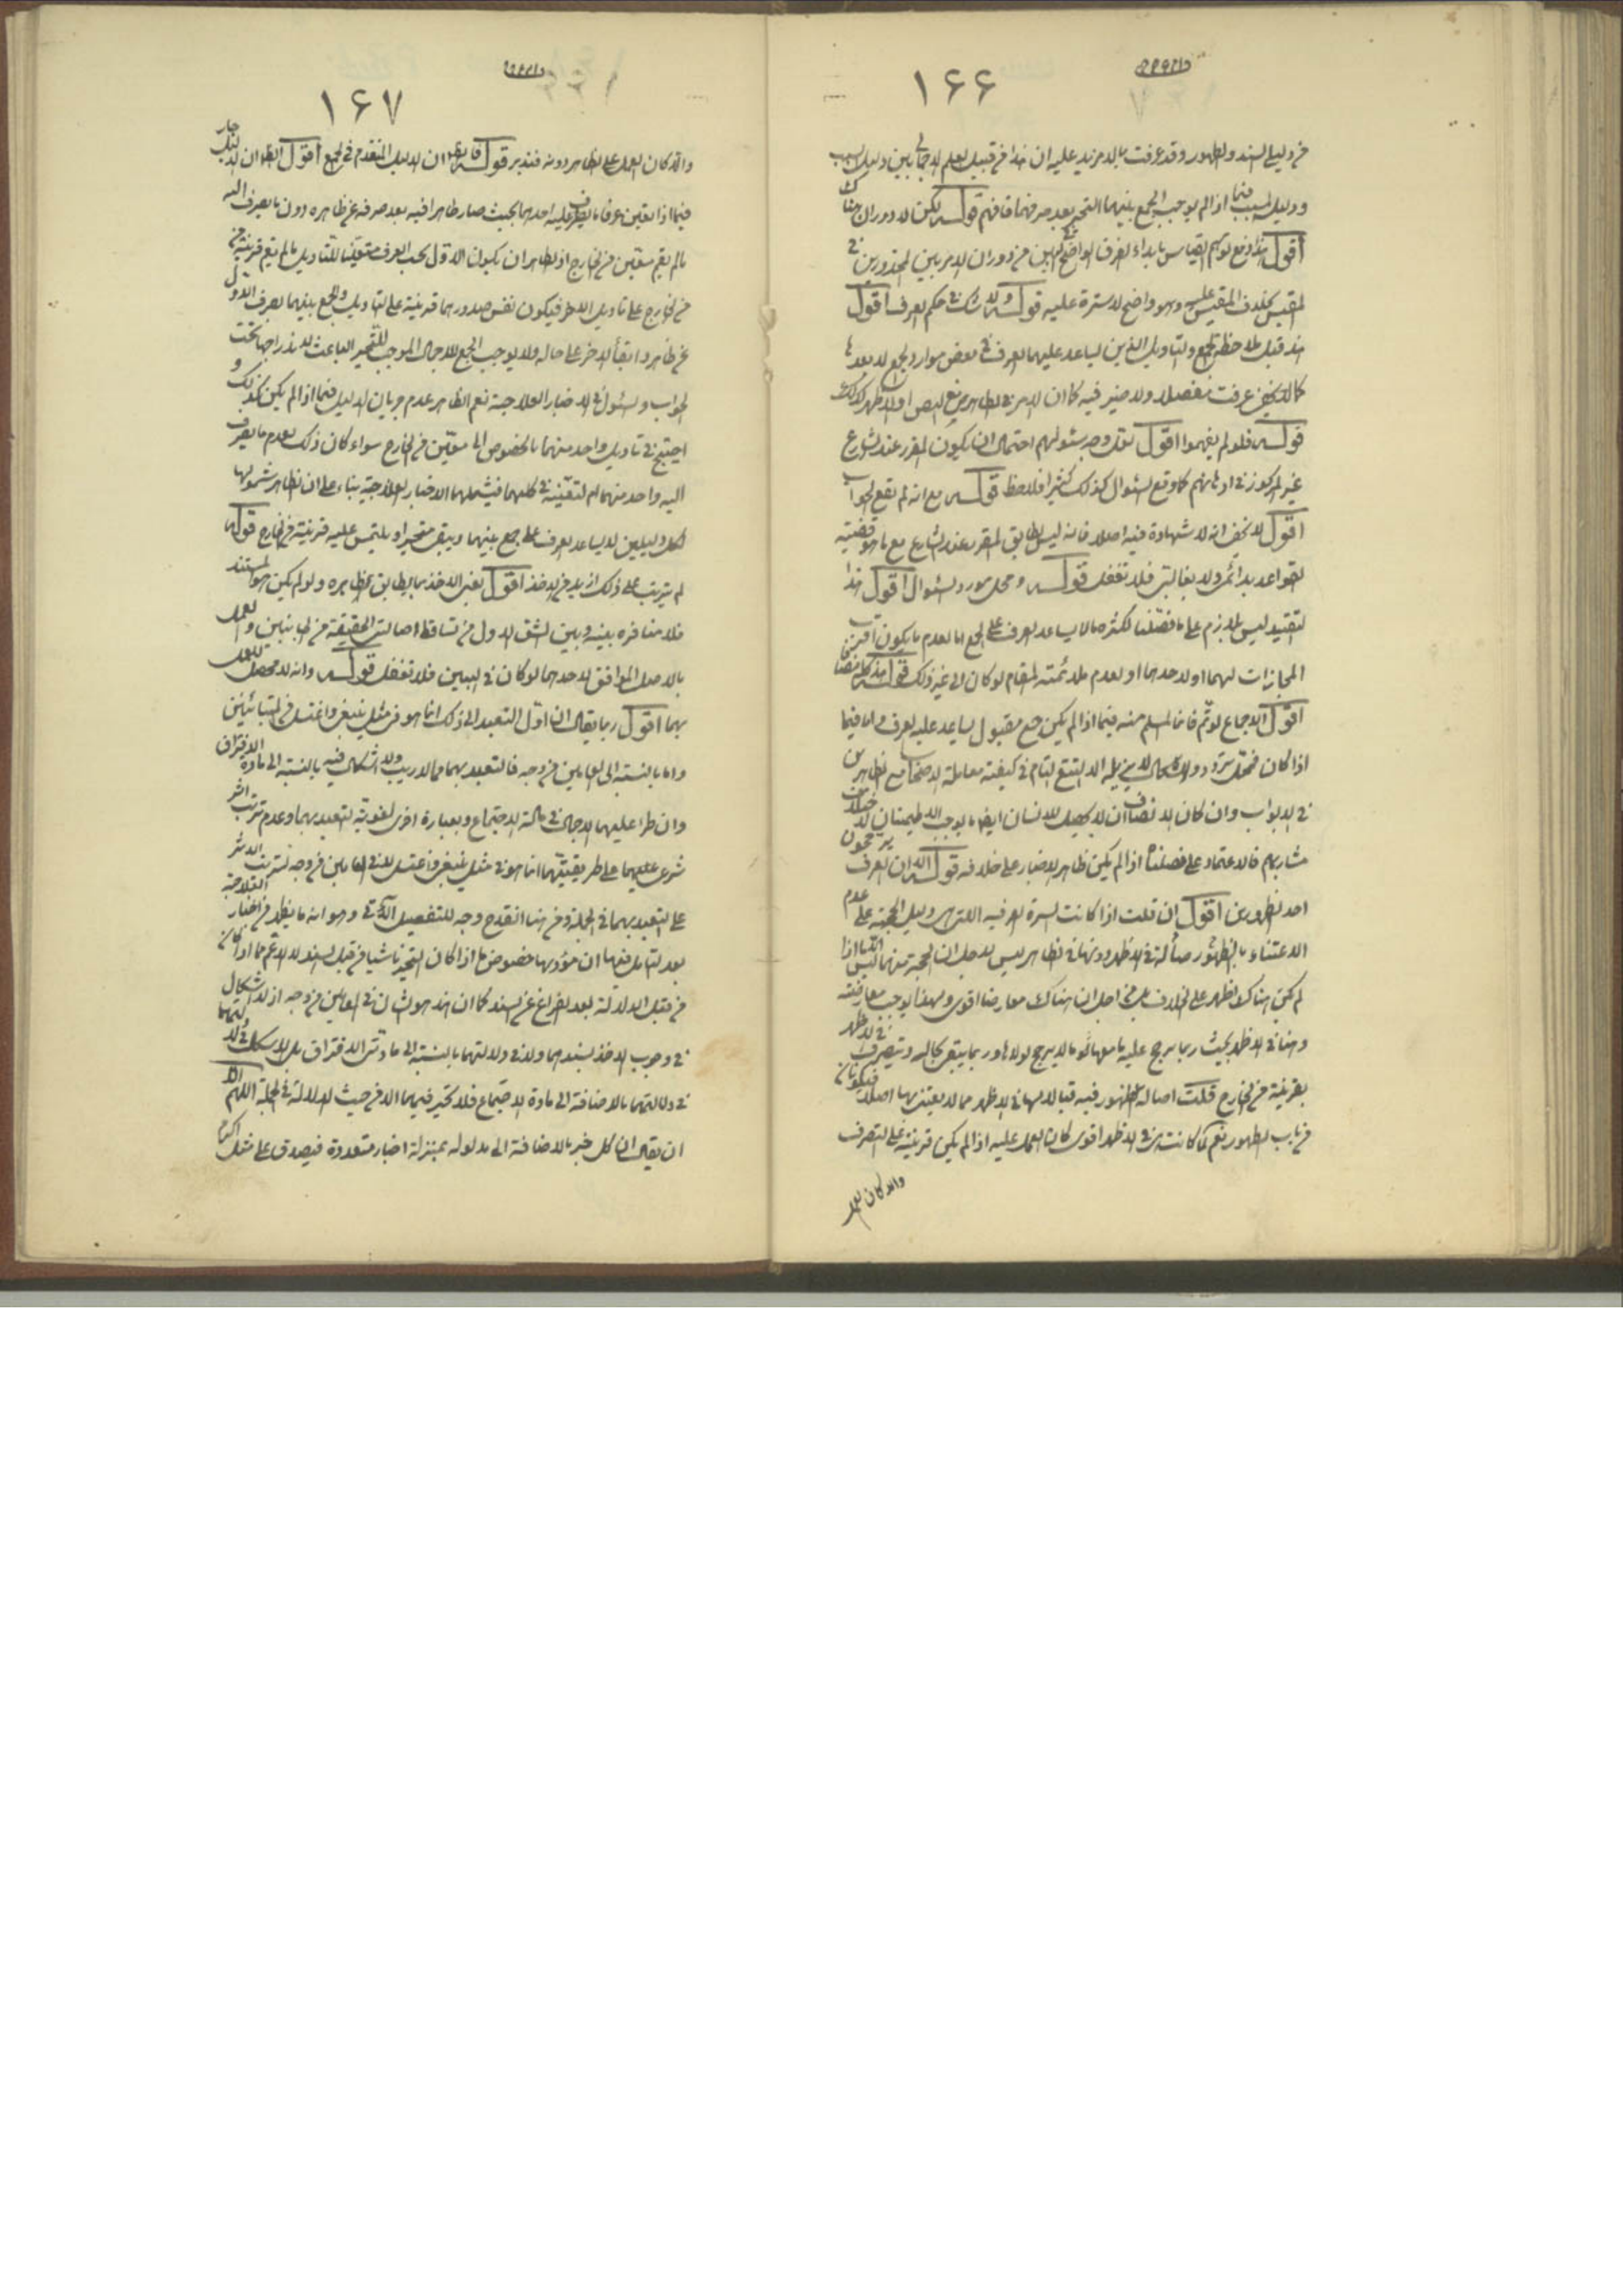 ١٦٦
من دليلي السند والظهور وقد عرفت بما لا مزيد عليه ان هذا من قبيل العلم الاجمالي بين دليل السبب
ودليل المسبب فيما اذا لم يوجب الجمع بينهما التحير بعد صرفهما فافهم قوله لكن لا دوران هناك
اقول هذا دفع توهم القياس بابداء الفرق الواضح البين من دوران الامر بين المحذورين في
المقيس بخلاف المقيس عليه وهو واضح لا سترة عليه قوله ولا شك في حكم العرف اقول
هذا قبل ملاحظة الجمع والتاويل الذين يساعد عليهما العرف في بعض موارد الجمع لا بعدها
كما لا يخفى عرفت مفصلا ولا ضير فيه كما ان الامر في الظاهر مع النص او الاظهر كذلك
قوله فلو لم يفهموا اقول لعل وجه سئوالهم احتمال ان يكون المقرر عند الشارع
غير المركوز في اذهانهم كما وقع السئوال كذلك كثيرا فلاحظ قوله مع انه لم يقع الجواب
اقول لا يخفى انه لا شهادة فيه اصلا فانه ليس لطابق المقرر عند الشارع مع ما هو قضية
القواعد بدائمي ولا بغالبي فلا تغفل قوله ومحل مورد السئوال اقول هذا
التقييد ليس بلازم على ما فصلنا لكثرة ما لا يساعد العرف على الجمع اما لعدم ما يكون اقرب
المجازات لهما او لاحدهما او لعدم ملائمته للمقام لو كان الى غير ذلك قوله
اقول الاجماع لو تم فانما المسلم منه فيما اذا لم يكن جمع مقبول يساعد عليه العرف واما فيما
اذا كان فمحل تردد والاشكال لا يزيله الا التتبع التام في كيفية معاملة الاصحاب مع الظاهرين
في الابواب وان كان الانصاف ان لا يحصل للانسان ايضا ما يوجب الاطمينان لاختلاف
مشاربهم فالاعتماد على ما فصلنا اذا لم يكن ظاهر الاخبار على خلافه قوله الا ان العرف يرجحون
احد الظهورين اقول ان قلت اذا كانت السيرة العرفية التي هي دليل الحجية على عدم
الاعتناء بالظهور صالة في الاظهر دونها في الظاهر ليس لاجل ان الحجية منها ليس الا اذا
لم يكن هناك اظهر على الخلاف بل من اجل ان هناك معارضا اقوى وبهذا يوجب معارضته
وهنا في الاظهر بحيث ربما يرجح عليه ما معها لو ما لا يرجح لولاها وربما يبقى بحاله ويتصرف في الاظهر
بقرينة من الخارج قلت اصالة الظهور فيه قبالا لها في الاظهر مما لا يعتنى بها اصلا فيكونان
من باب الظهور نعم لما كانت في الاظهر اقوى كان العمل عليه اذا لم يكن قرينة على التصرف
والا كان العمل
١٦٧
والا كان العمل على الظاهر دونه فتدبر قوله فان ان الدليل المتقدم في الجمع اقول الظاهر ان الدليل جار
فيما اذا تعين عرفا ما يصرف اليه احدهما بحيث صار ظاهرا فيه بعد صرفه عن ظاهره دون ما يصرف اليه
ما لم يقم معين من الخارج اذ الظاهر ان يكون الاول بحسب العرف متعينا للتاويل ما لم يقم قرينة من
من الخارج على تاويل الاخر فيكون نفس صدورهما قرينة على التاويل والجمع بينهما بصرف الاول
عن ظاهره وابقاء الاخر على حاله ولا يوجب الجمع الاجمال الموجب للتحير الباعث لاندراجها تحت
الجواب والسئول في الاخبار العلاجية نعم الظاهر عدم جريان الدليل فيما اذا لم يكن كذلك و
احتيج في تاويل واحد منهما بالخصوص الى معين من الخارج سواء كان ذلك لعدم ما يصرف
اليه واحد منهما ام لتعينه في كليهما فيشملهما الاخبار العلاجية بناء على ان الظاهر شمولها
لكل دليلين لا يساعد العرف على جمع بينهما ويبقى متحيرا ويلتمس عليه قرينة من الخارج قوله
لم يترتب على ذلك ازيد من الاخذ اقول يعنى الاخذ بما يطابق ظاهره ولو لم يكن هو المستند
فلا منافرة بينه وبين الشق الاول من تساقط اصالتي الحقيقة من الجانبين والعمل
بالاصل الموافق لاحدهما لو كان في البين فلا تغفل قوله وانه لا محصل للعمل
بهما اقول ربما يقال ان اول التعبد الى ذلك انما هو في مثل ينبغي واغتسل في المتباينين
واما بالنسبة الى العامين من وجه فالتعبد بهما مما لا ريب ولا اشكال فيه بالنسبة الى مادة الافتراق
وان طرا عليهما الاجمال في مادة الاجتماع وبعبارة اخرى لغوية التعبد بهما وعدم ترتب اثر
شرعى عليهما على طريقيتهما انما هو في مثل ينبغي واغتسل لا في العامين من وجه لترتب الاثر
على التعبد بهما في الجملة ومن هنا انقدح وجه للتفصيل الآتى وهو انه ما يظهر من اخبار العلاجية
بعد التامل فيها ان موردها خصوص ما اذا كان التحير ناشيا من قبل السند لا الاعم مما اذا كان
من قبل الدلالة بعد الفراغ عن السند كما ان هذا هو الشان في العامين من وجه اذ لا اشكال
في وجوب الاخذ بسندهما ولا في دلالتهما بالنسبة الى مادتى الافتراق بل الاشكال في دلالتهما
في دلالتهما بالاضافة الى مادة الاجتماع فلا تحير فيهما الا من حيث الدلالة في الجملة اللهم الا
ان يقال ان كل خبر بالاضافة الى مدلوله بمنزلة اخبار متعددة فيصدق على مثل اكرم